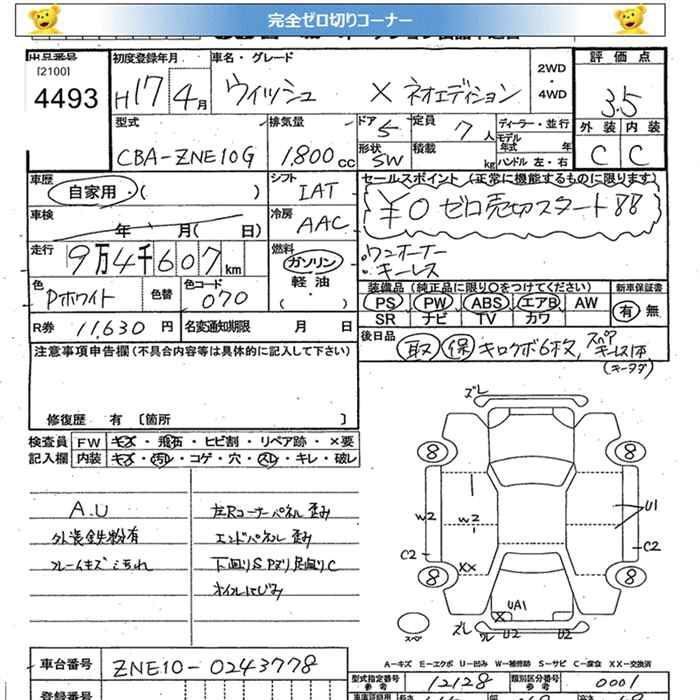 完全ゼロ切りコーナー
出品番号
[2100]
4493
初度登録年月
H17年4月
車名・グレード
ウィッシュ X ネオエディション
2WD
・
4WD
評価点
3.5
外装 内装
C C
型式
CBA-ZNE10G
排気量
1,800cc
ドア 5
定員 7人
ディーラー・並行
モデル年式 年
形状 SW
積載 kg
ハンドル 左・右
車歴
自家用・( )
シフト
IAT
セールスポイント (正常に機能するものに限ります)
¥0 ゼロ売切スタート88
車検
年 月( 日)
冷房
AAC
・ワンオーナー
・キーレス
走行
9万4千607km
燃料
ガソリン
軽油
・( )
色
Pホワイト
色替
色コード
070
装備品 (純正品に限り○をつけてください)
PS PW ABS エアB AW
SR ナビ TV カワ
新車保証書
有 無
R券 11,630円
名変通知期限 月 日
後日品
取 保 キロクボ6枚、スペアキーレス1本
注意事項申告欄(不具合内容等は具体的に記入して下さい)
修復歴 有 〔箇所 〕
検査員 FW キズ・飛石・ヒビ割・リペア跡・×要
記入欄 内装 キズ・汚レ・コゲ・穴・スレ・キレ・破レ
A.U
外装鉄粉有
左Rコーナーパネル歪み
エンドパネル歪み
下廻りSPヌリ足廻りC
オイルにじみ
ズレ
8 8
U1
W2 W2
C2 C2
XX
8 8
UA1
X
スペ
ズレ U2 U2
A-キズ E-エクボ U-凹み W-補修跡 S-サビ C-腐食 XX-交換済
車台番号 ZNE10-0243778
型式指定番号 参考 12128
類別区分番号 参考 0001
登録番号